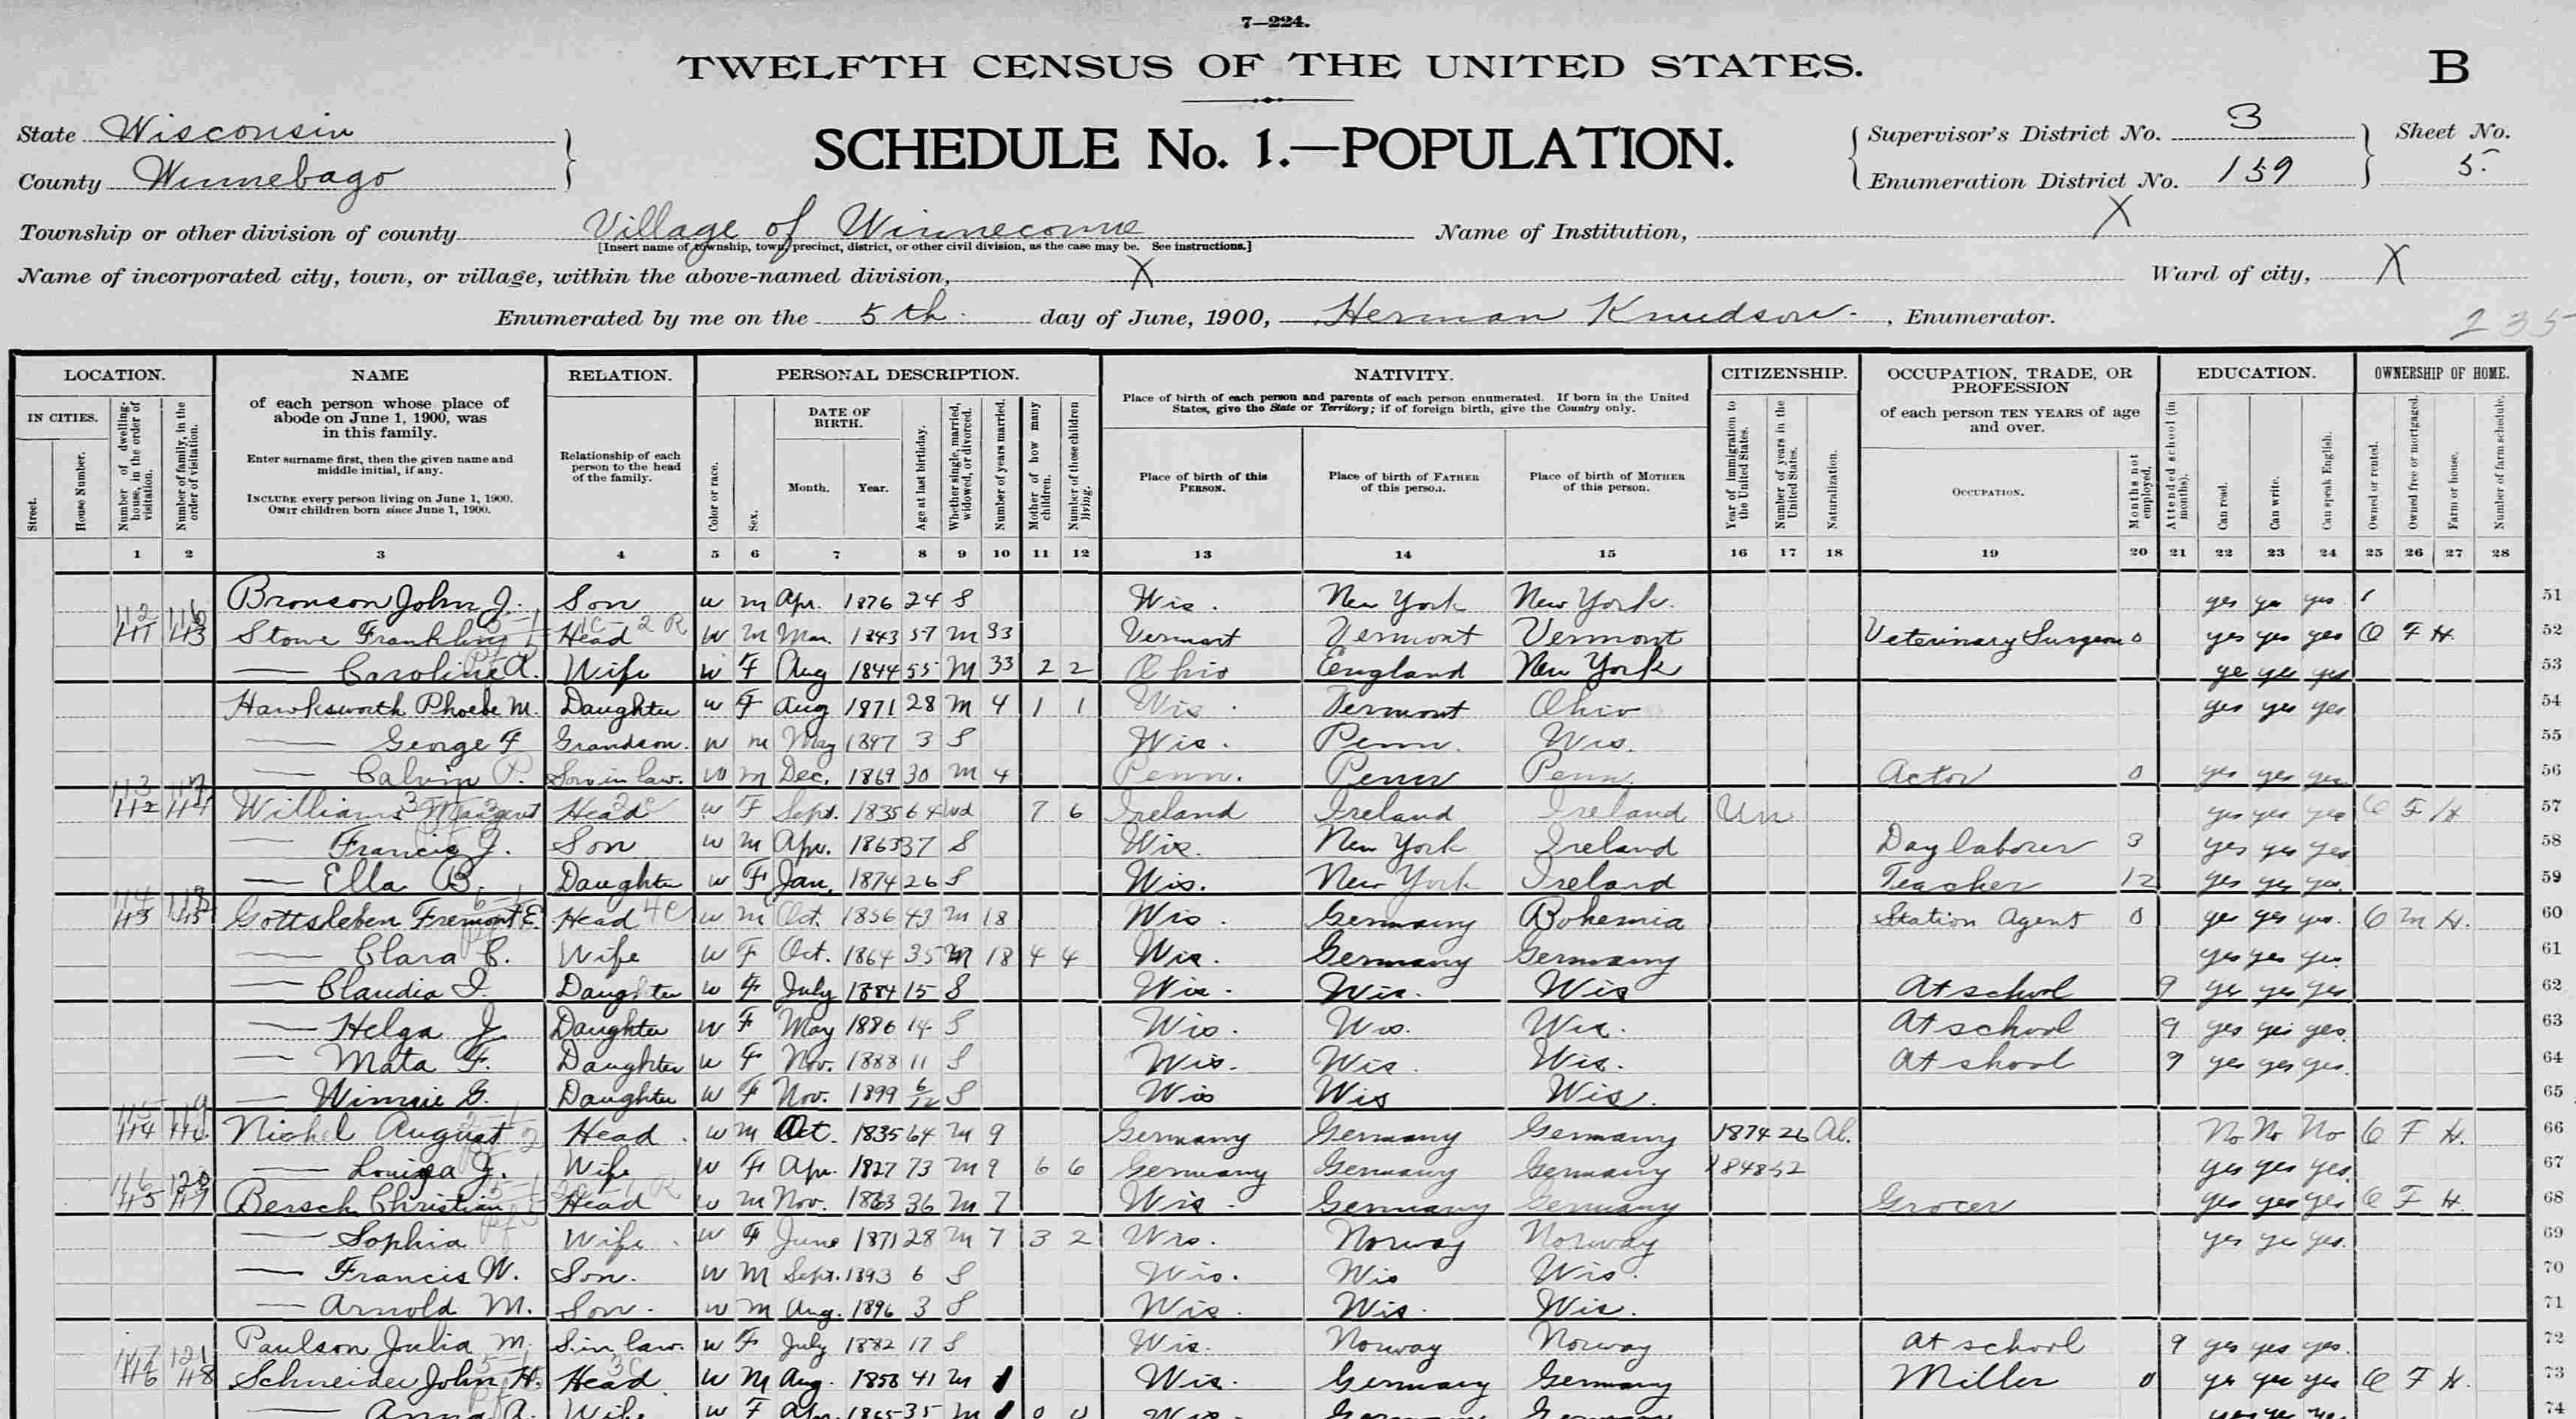 7—224.
TWELFTH CENSUS OF THE UNITED STATES.
B
State Wisconsin
County Winnebago
SCHEDULE No. 1.—POPULATION.
Supervisor's District No. 3
Enumeration District No. 159
Sheet No.
5
Township or other division of county Village of Winneconne
[Insert name of township, town, precinct, district, or other civil division, as the case may be. See instructions.]
Name of Institution, X
Name of incorporated city, town, or village, within the above-named division, X
Ward of city, X
Enumerated by me on the 5th day of June, 1900, Herman Knudson, Enumerator.
235
LOCATION. NAME RELATION. PERSONAL DESCRIPTION. NATIVITY. CITIZENSHIP. OCCUPATION, TRADE, OR PROFESSION EDUCATION. OWNERSHIP OF HOME.
IN CITIES.
Street.
House Number.
Number of dwelling-house, in the order of visitation.
Number of family, in the order of visitation.
of each person whose place of abode on June 1, 1900, was in this family.
Enter surname first, then the given name and middle initial, if any.
INCLUDE every person living on June 1, 1900.
OMIT children born since June 1, 1900.
Relationship of each person to the head of the family.
Color or race.
Sex.
DATE OF BIRTH.
Month. Year.
Age at last birthday.
Whether single, married, widowed, or divorced.
Number of years married.
Mother of how many children.
Number of these children living.
Place of birth of each person and parents of each person enumerated. If born in the United States, give the State or Territory; if of foreign birth, give the Country only.
Place of birth of this PERSON.
Place of birth of FATHER of this person.
Place of birth of MOTHER of this person.
Year of immigration to the United States.
Number of years in the United States.
Naturalization.
of each person TEN YEARS of age and over.
OCCUPATION.
Months not employed.
Attended school (in months).
Can read.
Can write.
Can speak English.
Owned or rented.
Owned free or mortgaged.
Farm or house.
Number of farm schedule.
1 2 3 4 5 6 7 8 9 10 11 12 13 14 15 16 17 18 19 20 21 22 23 24 25 26 27 28
Bronson John J. Son w m Apr. 1876 24 S Wis. New York New York. yes yes yes 51
112 116
Stowe Franklin Head w m Mar. 1843 57 m 33 Vermont Vermont Vermont Veterinary Surgeon 0 yes yes yes O F H. 52
— Caroline A. Wife w F Aug 1844 55 m 33 2 2 Ohio England New York ye yes yes 53
Hawksworth Phoebe M. Daughter w F Aug 1871 28 m 4 1 1 Wis. Vermont Ohio yes yes yes 54
— George F Grandson. w m May 1897 3 S Wis. Penn. Wis. 55
— Calvin P. Son in law. w m Dec. 1869 30 m 4 Penn. Penn Penn Actor 0 yes yes yes 56
113 117
112 114 Williams Margaret Head w F Sept. 1835 64 wd 7 6 Ireland Ireland Ireland Un yes yes yes O F H 57
— Francis J. Son w m Apr. 1863 37 S Wis. New York Ireland Day laborer 3 yes yes yes 58
— Ella B. Daughter w F Jan. 1874 26 S Wis. New York Ireland Teacher 12 yes yes yes 59
114 118
113 115 Gottsleben Fremont E. Head w m Oct. 1856 43 m 18 Wis. Germany Bohemia Station Agent 0 yes yes yes. O m H. 60
— Clara C. Wife w F Oct. 1864 35 m 18 4 4 Wis. Germany Germany yes yes yes 61
— Claudia I. Daughter w F July 1884 15 S Wis. Wis. Wis At school 9 yes yes yes 62
— Helga J. Daughter w F May 1886 14 S Wis. Wis. Wis. At school 9 yes yes yes. 63
— Mata F. Daughter w F Nov. 1888 11 S Wis. Wis. Wis. At shool 9 yes yes yes. 64
— Winnie G. Daughter w F Nov. 1899 6/12 S Wis Wis Wis. 65
115 119
114 116 Nichel August Head w m Oct. 1835 64 m 9 Germany Germany Germany 1874 26 Al. No No No O F H. 66
— Louisa J. Wife w F Apr. 1827 73 m 9 6 6 Germany Germany Germany 1848 52 yes yes yes 67
116 120
115 117 Bersch Christian Head w m Nov. 1863 36 m 7 Wis. Germany Germany Grocer yes yes yes O F H. 68
— Sophia Wife w F June 1871 28 m 7 3 2 Wis. Norway Norway yes ye yes. 69
— Francis W. Son. w m Sept. 1893 6 S Wis. Wis Wis. 70
— Arnold M. Son. w m Aug. 1896 3 S Wis. Wis. Wis. 71
Paulson Julia M. S. in law. w F July 1882 17 S Wis. Norway Norway At school 9 yes yes yes. 72
117 121
116 118 Schneider John H. Head w m Aug. 1858 41 m 1 Wis. Germany Germany Miller 0 yes yes yes O F H. 73
— Anna A. Wife w F Apr. 1865 35 m 1 0 0 Wis Germany Germany yes yes yes 74